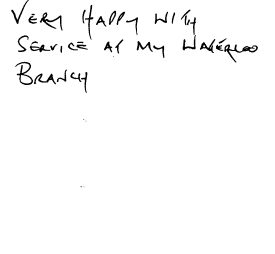 Very Happy with
Service at my Waterloo
Branch